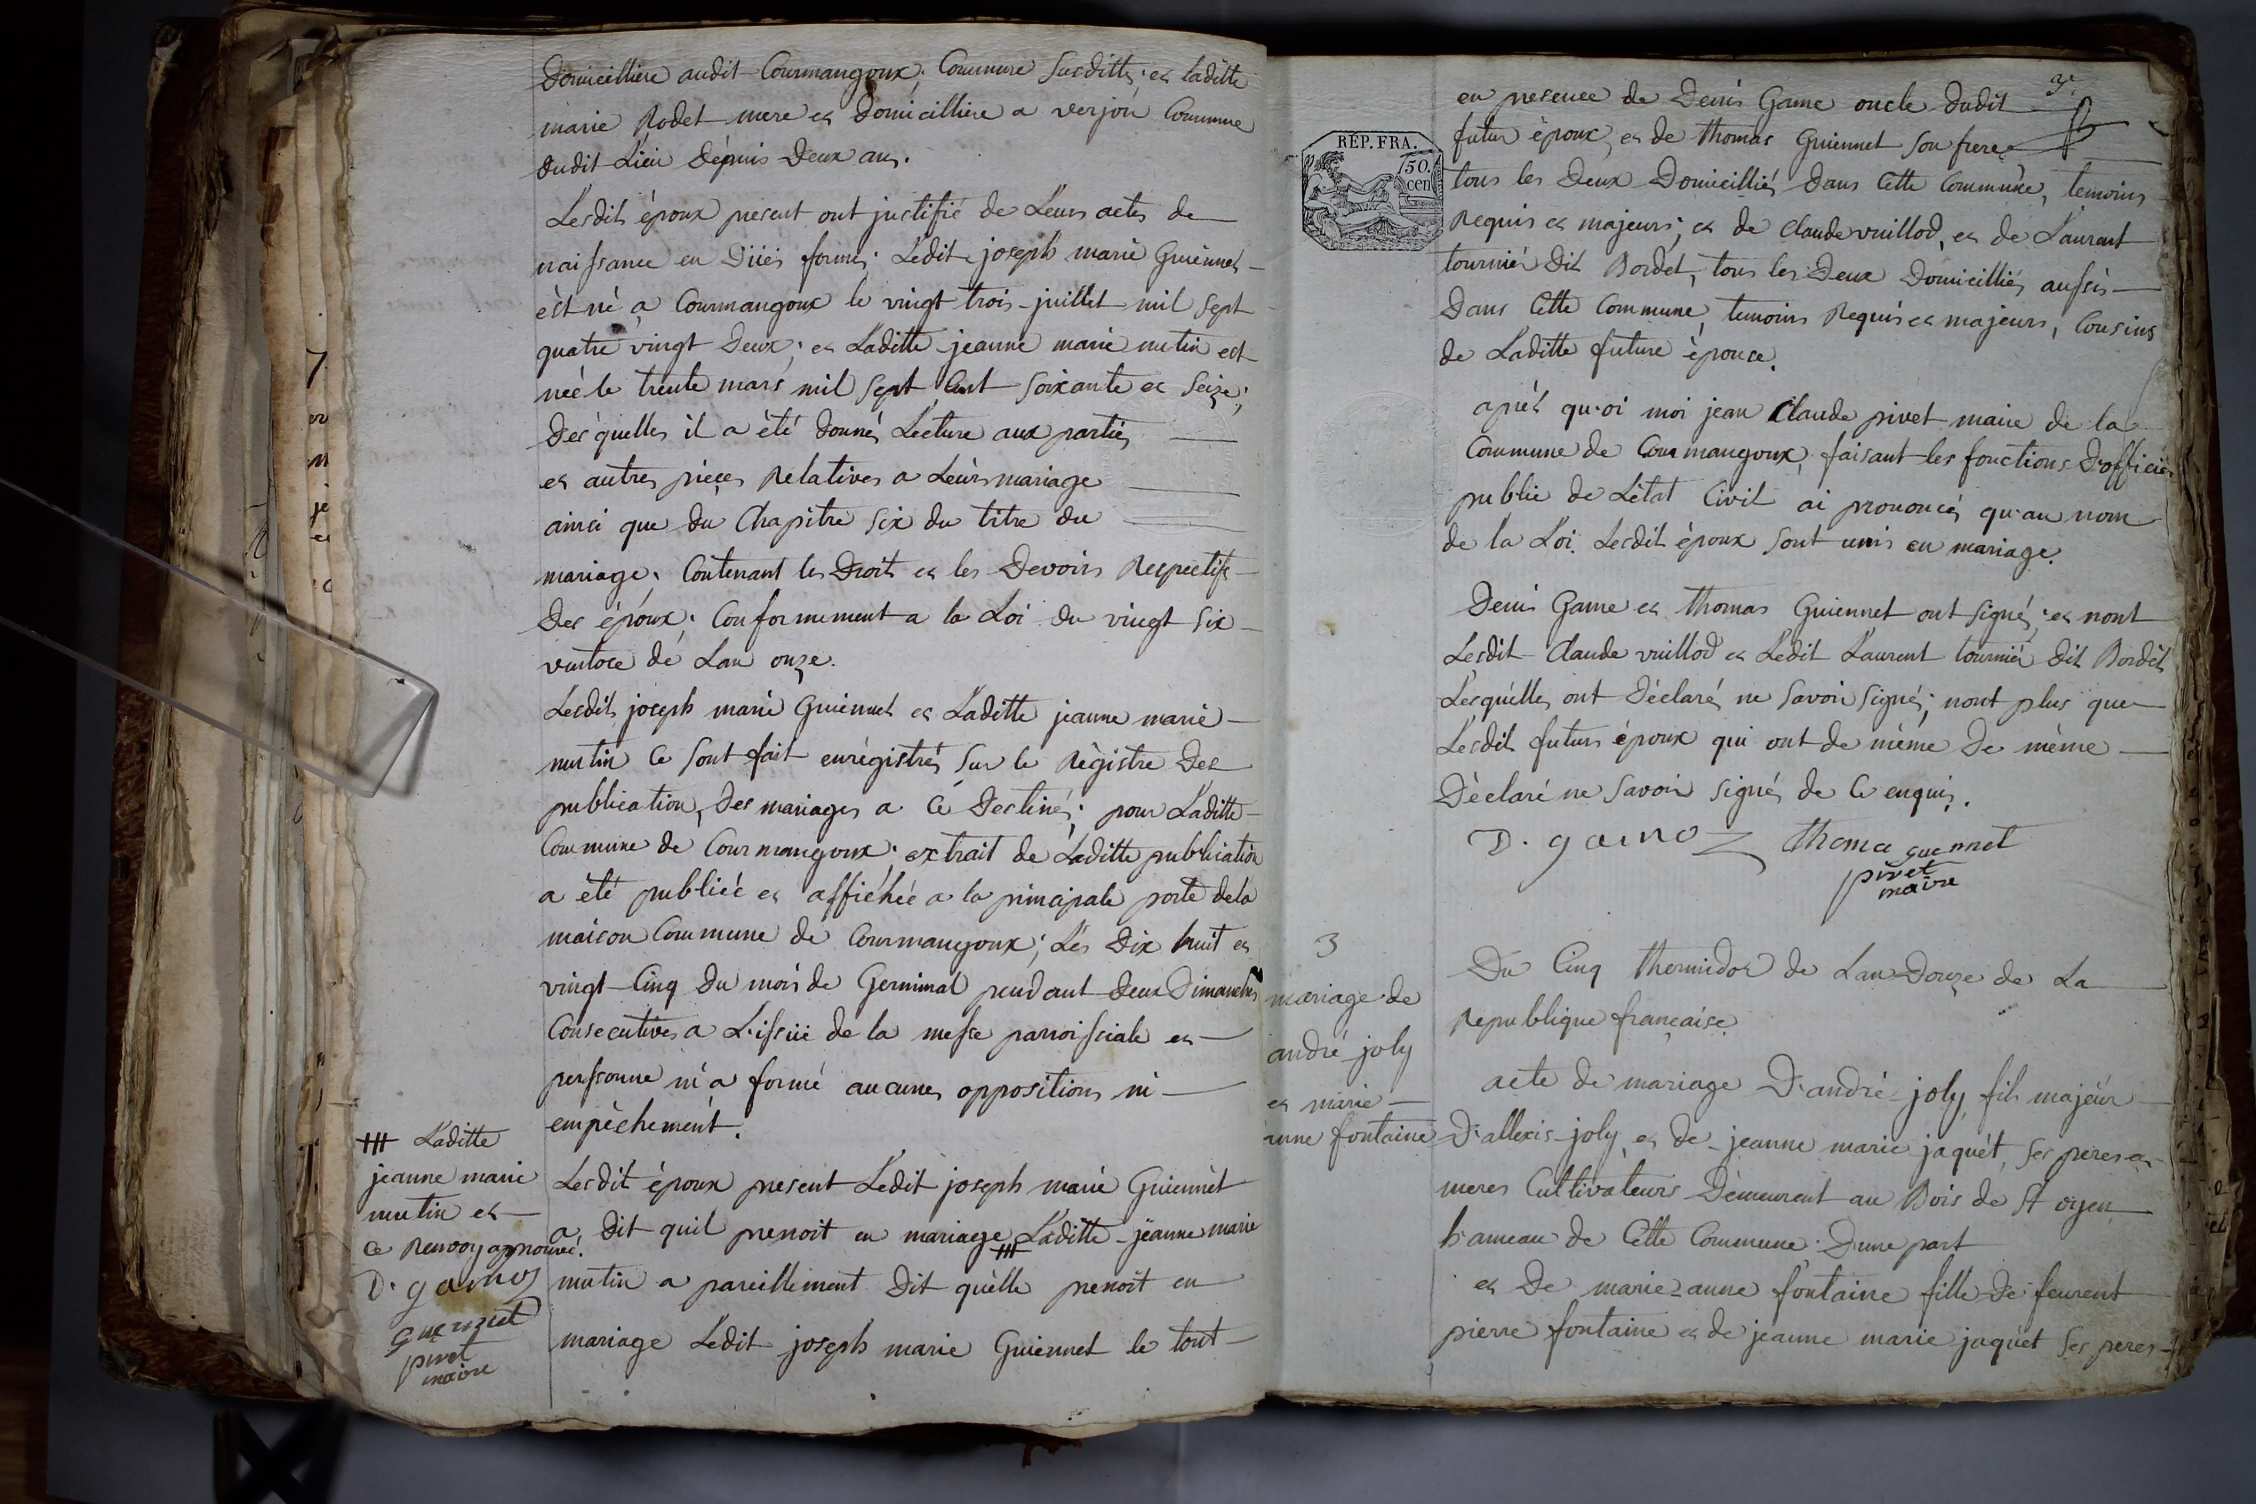 Domicilliere audit Courmangoux; Commune Susditte; et laditte
marie Rodet mere et Domicilliere a verjon Commune
dudit Lieu Depuis Deux ans.
Lesdits époux present ont justifié de Leurs actes de
naissance en Düés formes; Ledit joseph marie Guiennet
èst né a Courmangoux le vingt trois juillet mil sept
quatre vingt Deux; et Laditte jeanne marie mutin est
née le trente mars mil sept Cent soixante et seize;
Des quelles il a èté donnés Lecture aux parties
et autres pièces Relatives a Leurs mariage
ainsi que du Chapitre six du titre du
mariage. Contenant les Droits et les Devoirs Respectifs
Des époux; Conformement a la Loi du vingt six
ventose dé Lan onze.
Lesdits joseph marie Guiennet et Laditte jeanne marie
mutin Ce sont fait enrégistrés sur le Régistre Des
publication, Des mariages a Cé Destinés; pour Laditte
Commune de Courmangoux; extrait de Laditte publication
a été publiée et affichée a la principale porte de la
maison Commune de Courmangoux; Lés Dix huit et
vingt Cinq Du mois de Germinal pendant deux Dimanches
Consecutives a L'issüe de la messe parroissiale et
perssonne n'i a formé aucunes oppositions ni
empêchement.
Lesdit époux present Ledit joseph marie Guiennèt
a dit quil prenoit en mariage Laditte jeanne marie
mutin a pareillement Dit quèlle prenoit en
mariage Ledit joseph marie Guiennet le tout
Laditte
jeanne marie
mutin et
Ce Renvoy approuvé.
D. gamoz
guennet
pivet
maire
RÉP. FRA.
50.
cen
en presence de Denis Game oncle dudit
futur èpoux, et de thomas Guiennet son frere
tous les Deux Domicilliés Dans Cette Commune, temoins
Requis et majeurs; et de Claude vuillod, et de Laurent
tournier Dit Bordet, tous les Deux Domicilliés aussi
Dans Cette Commune, temoins Requis et majeurs, Cousins
de Laditte future èpouse.
aprés quoi moi jean Claude pivet maire de la
Commune de Courmangoux, faisant les fonctions D'officier
public de Létat Civil ai prononcés qu'au nom
de la Loi. Lesdit époux sont unis en mariage.
Denis Game et thomas Guiennet ont signés; et nont
Lesdit Claude vuillod et Ledit Laurent tournier dit Bordèt
Lesquélles ont Déclarés ne savoir signés; nont plus que
Lesdits futurs époux qui ont de même De mème
Dèclaré ne savoir signés de Ce enquis.
D. gamoz thoma guennet
pivet
maire
3
mariage de
andré joly
et marie
anne fontaine
Du Cinq thermidor de Lan Douze de La
Republique française
acte de mariage D'andré joly fils majeur
D'allexis joly et de jeanne marie jaquét, ses peres et
meres Cultivateurs Demeurent au Bois de St oyen
hameau de Cette Commune. Dune part
et De marie anne fontaine fille de feurent
pierre fontaine et de jeanne marie jaquét ses peres